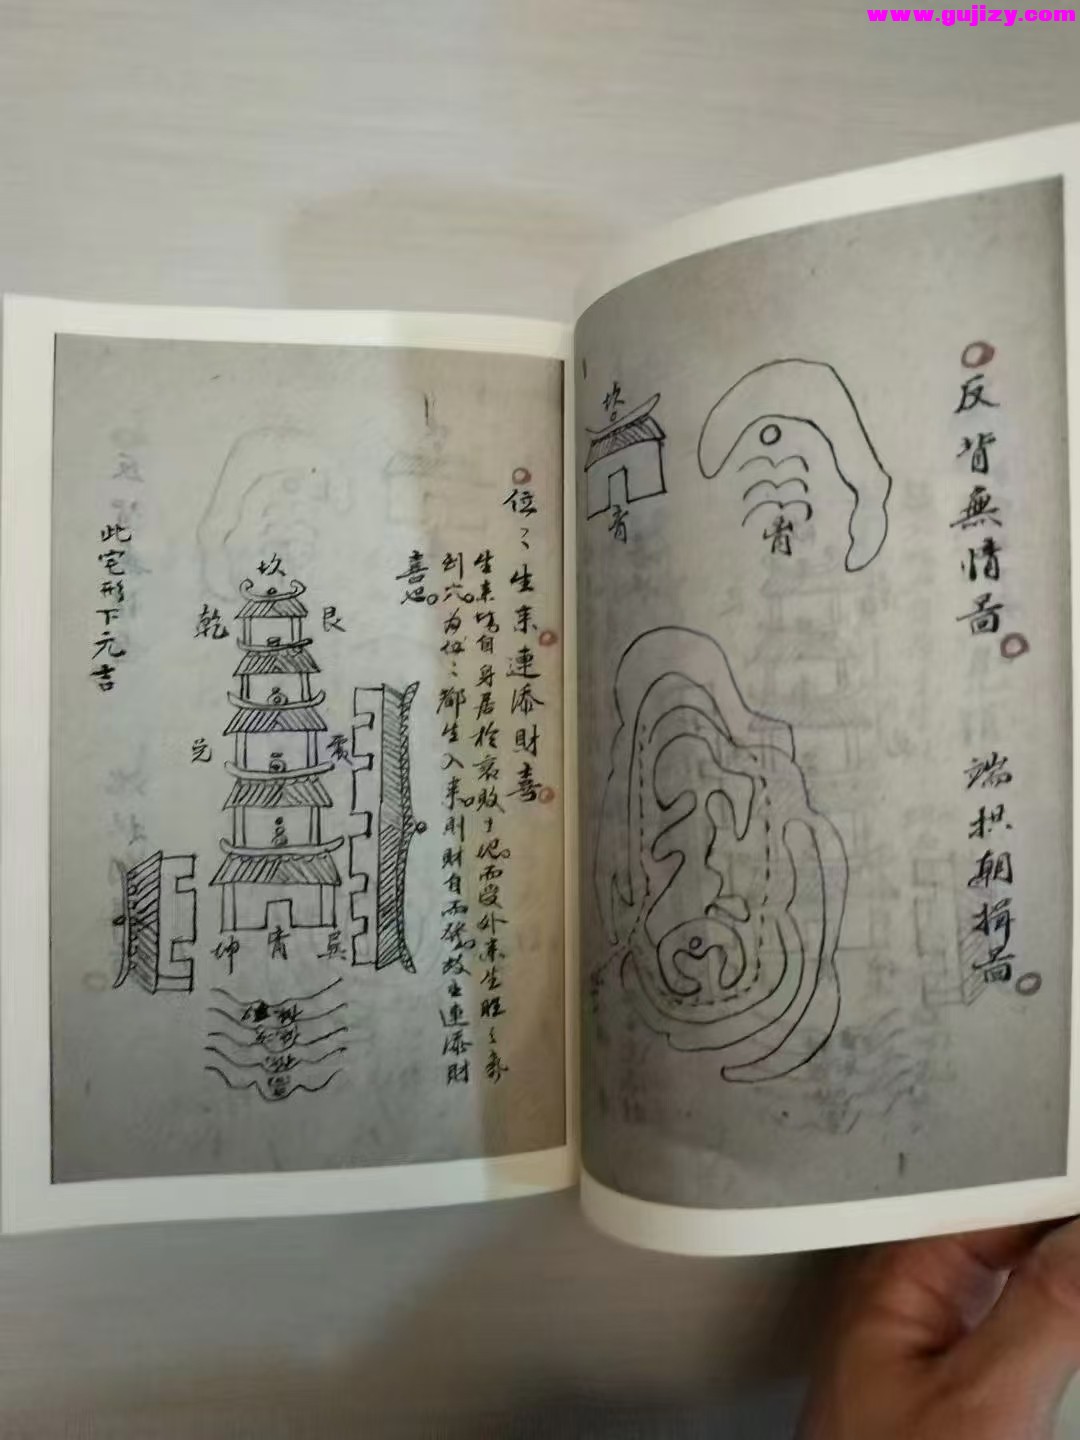 www.gujizy.com
反背無情啚
端拱朝揖啚
坎
位〻生来連添財喜
生来坊自身居於衰敗之地而受外来生旺之氣
到穴為位〻都生入来則財自而發故主連添財
喜也
坎
乾
艮
兑
震
坤
巽
此宅形下元吉